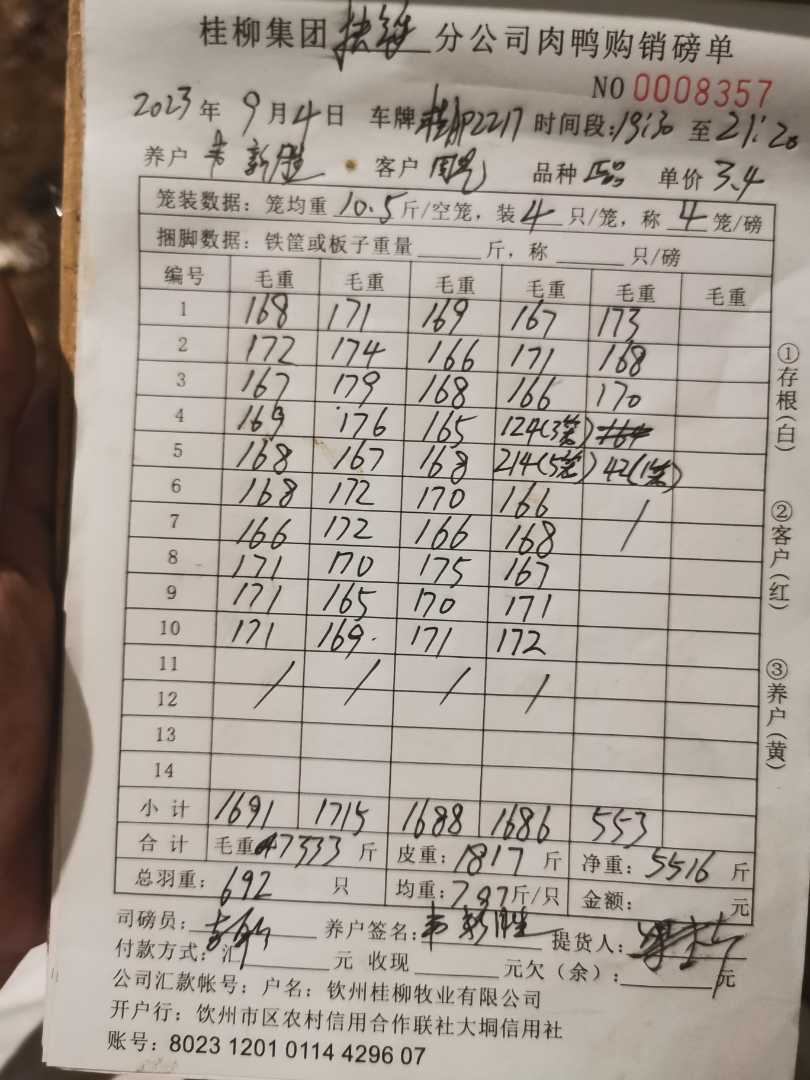 桂柳集团 分公司肉鸭购销磅单
NO 0008357
2023年9月4日 车牌 P2217 时间段:19:30至21:20
养户 韦新胜 客户 品种 正品 单价 3.4
笼装数据:笼均重 10.5 斤/空笼,装 4 只/笼,称 4 笼/磅
捆脚数据:铁筐或板子重量 斤,称 只/磅
编号 毛重 毛重 毛重 毛重 毛重 毛重
1 168 171 169 167 173
2 172 174 166 171 168
3 167 179 168 166 170
4 169 176 165 124(3笼)
5 168 167 168 214(5笼) 42(1笼)
6 168 172 170 166 /
7 166 172 166 168
8 171 170 175 167
9 171 165 170 171
10 171 169. 171 172
11 / / / /
12
13
14
小计 1691 1715 1688 1686 553
合计 毛重 7333 斤 皮重:1817 斤 净重:5516 斤
总羽重:692 只 均重:7.97斤/只 金额: 元
司磅员: 养户签名:韦新胜 提货人:
付款方式:汇 元 收现 元欠(余): 元
公司汇款帐号:户名:钦州桂柳牧业有限公司
开户行:钦州市区农村信用合作联社大垌信用社
账号:8023 1201 0114 4296 07
①存根(白)
②客户(红)
③养户(黄)